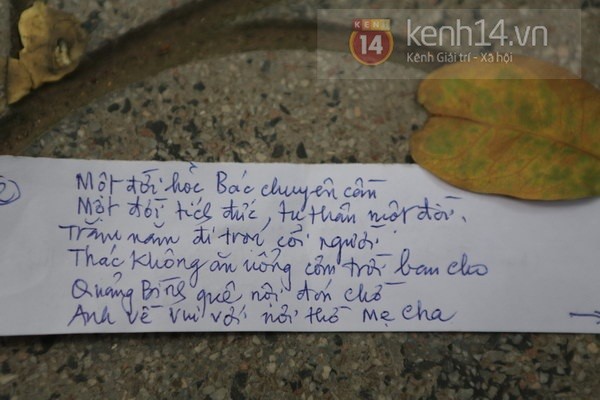 KENH 14
kenh14.vn
Kênh Giải trí - Xã hội
2
Một đời học Bác chuyên cần
Một đời tích đức, tu thân một đời.
Trăm năm đi trọn cõi người
Thác không ăn uống cơm trời ban cho
Quảng Bình quê nội đón chờ
Anh về vui với nơi thờ Mẹ cha